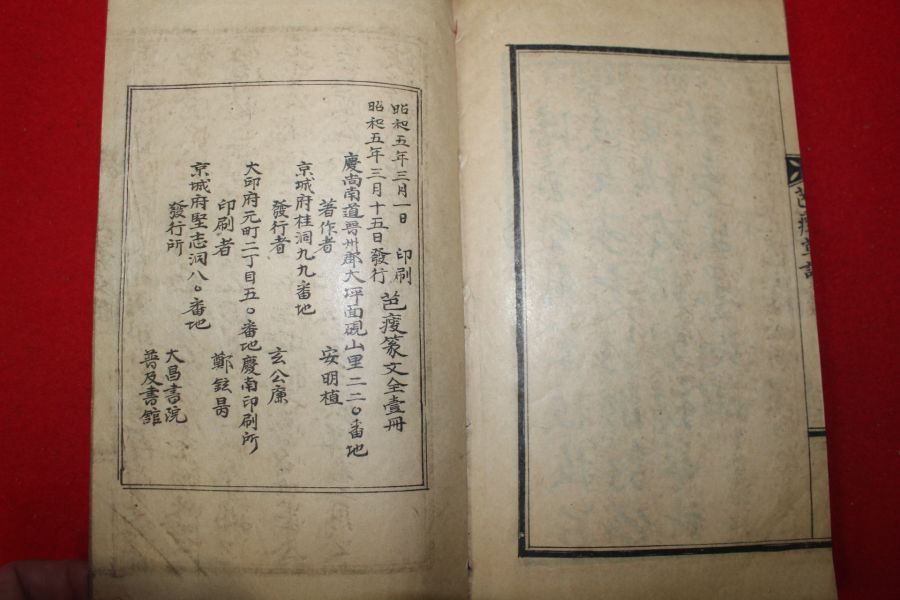 昭和五年三月一日 印刷
昭和五年三月十五日發行
芑瘦篆文全壹冊
慶尚南道晋州郡大坪面硯山里二二〇番地
著作者 安明植
京城府桂洞九九番地
發行者 玄公廉
大邱府元町二丁目五〇番地慶南印刷所
印刷者 鄭鉉昺
京城府堅志洞八〇番地
發行所 大昌書院
普及書館